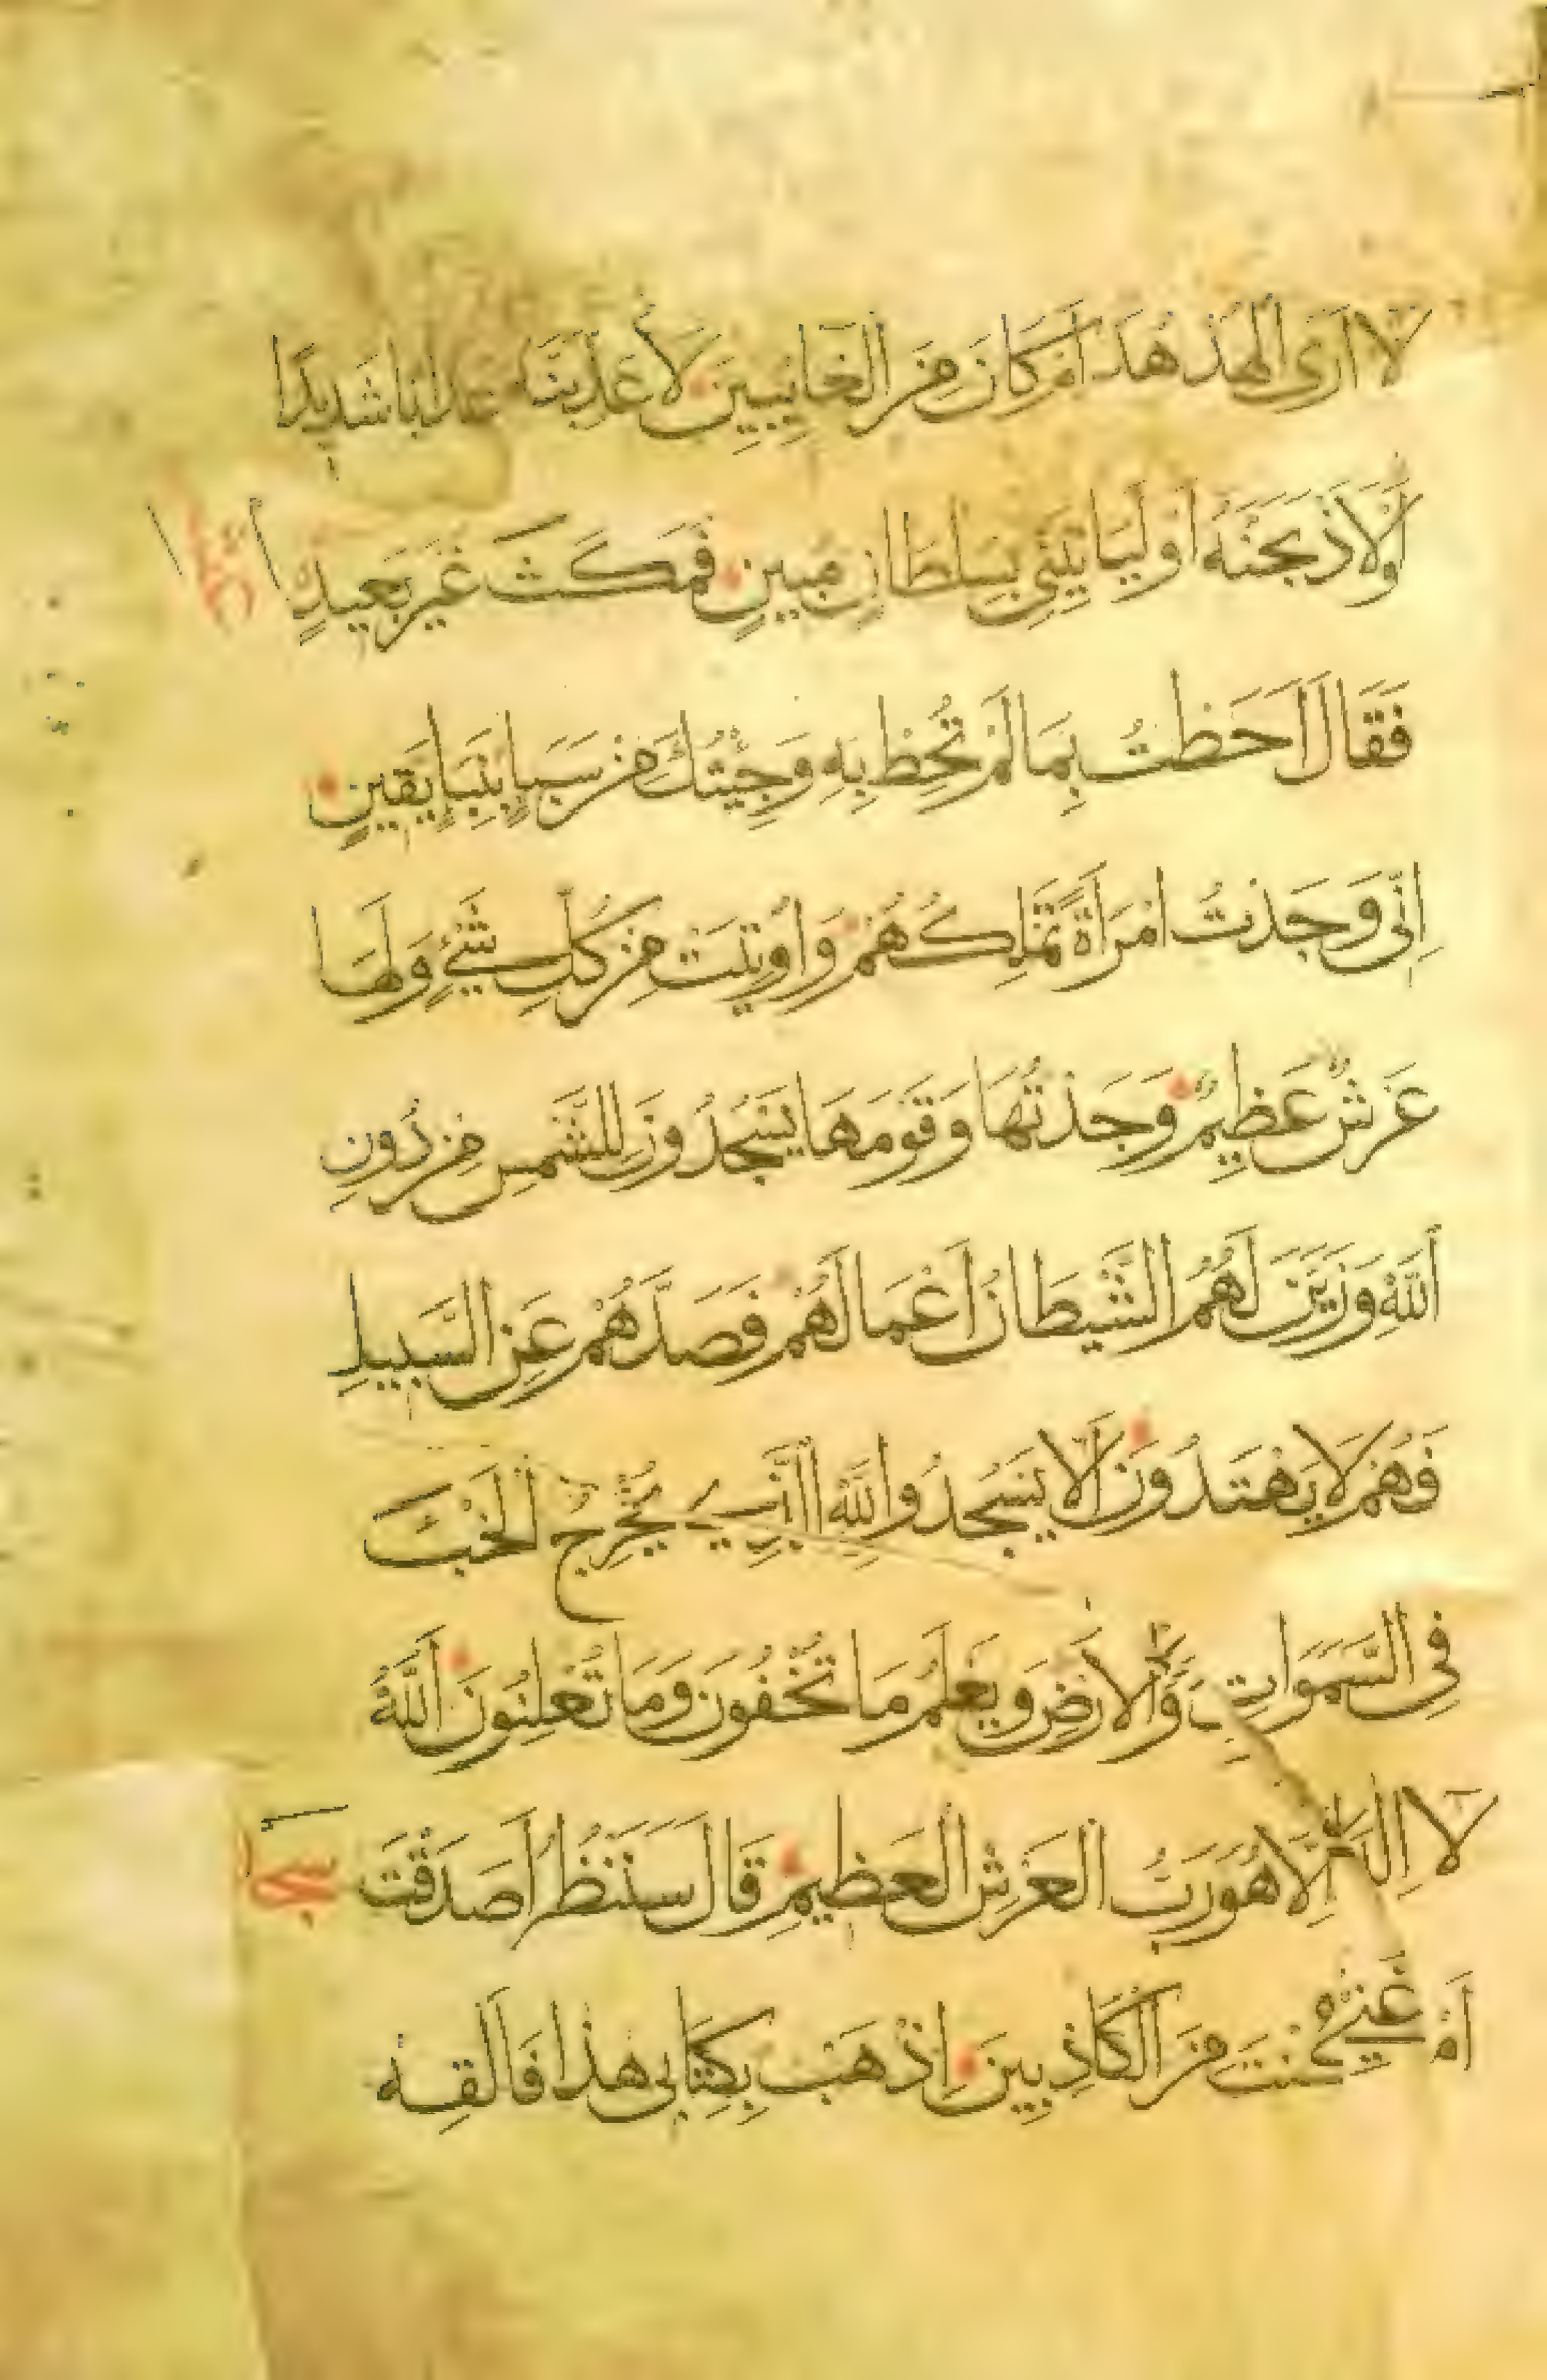 لَا اَرَى الْهُدْهُدَ اَمْ كَانَ مِنَ الْغَايِبِينَ لَاُعَذِّبَنَّهُ عَذَابًا شَدِيدًا
اَوْ لَاَذْبَحَنَّهُ اَوْ لَيَاتِيَنِّي بِسُلْطَانٍ مُبِينٍ فَمَكَثَ غَيْرَ بَعِيدٍ
فَقَالَ اَحَطْتُ بِمَا لَمْ تُحِطْ بِهِ وَجِئْتُكَ مِنْ سَبَاٍ بِنَبَاٍ يَقِينٍ
اِنِّي وَجَدْتُ امْرَاَةً تَمْلِكُهُمْ وَاُوتِيَتْ مِنْ كُلِّ شَيْءٍ وَلَهَا
عَرْشٌ عَظِيمٌ وَجَدْتُهَا وَقَوْمَهَا يَسْجُدُونَ لِلشَّمْسِ مِنْ دُونِ
اَللَّهِ وَزَيَّنَ لَهُمُ الشَّيْطَانُ اَعْمَالَهُمْ فَصَدَّهُمْ عَنِ السَّبِيلِ
فَهُمْ لَا يَهْتَدُونَ اَلَّا يَسْجُدُوا لِلَّهِ الَّذِي يُخْرِجُ الْخَبْءَ
فِي السَّمَوَاتِ وَالْاَرْضِ وَيَعْلَمُ مَا تُخْفُونَ وَمَا تُعْلِنُونَ اَللَّهُ
لَا اِلَهَ اِلَّا هُوَ رَبُّ الْعَرْشِ الْعَظِيمِ قَالَ سَنَنْظُرُ اَصَدَقْتَ
اَمْ كُنْتَ مِنَ الْكَاذِبِينَ اِذْهَبْ بِكِتَابِي هَذَا فَاَلْقِهْ